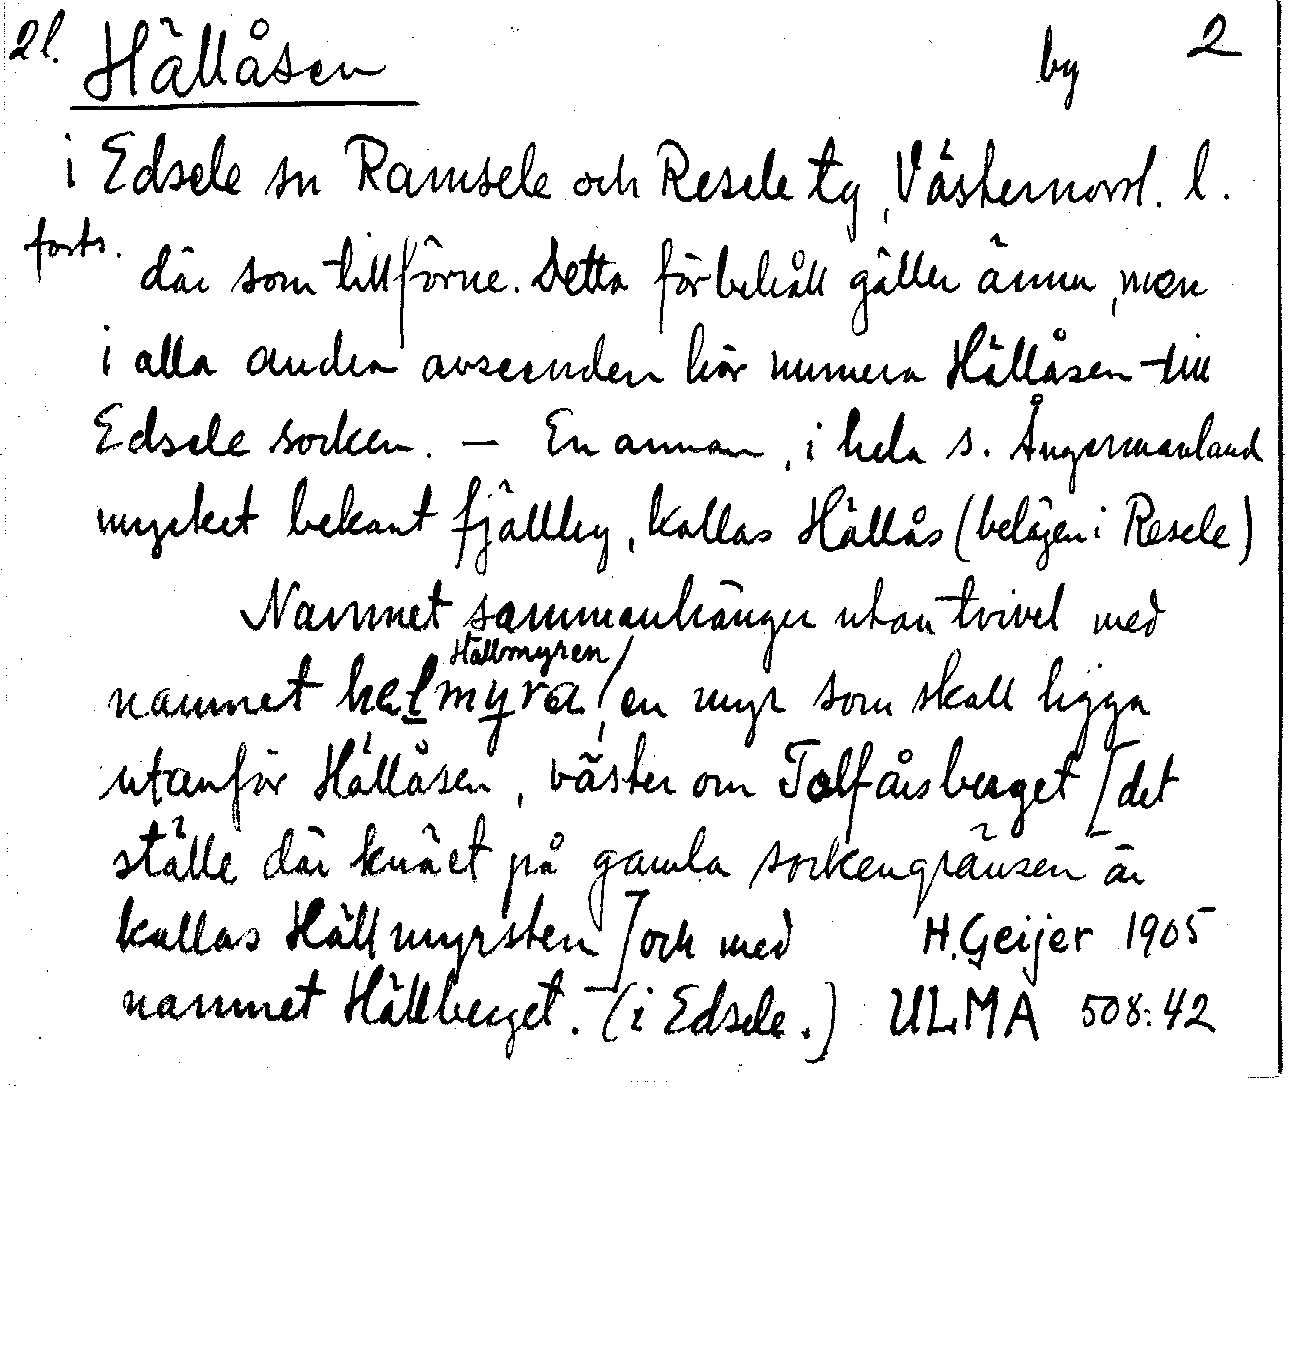 2 l. Hällåsen by 2
i Edsele sn Ramsele och Resele tg, Västernorrl. l.
forts. där som tillförne. Detta förbehåll gäller ännu, men
i alla andra avseenden hör numera Hällåsen till
Edsele socken. — En annan, i hela s. Ångermanland
mycket bekant fjällby, kallas Hällås (belägen i Resele)
Namnet sammanhänger utan tvivel med
Hällmyren/
namnet helmyra, en myr som skall ligga
utanför Hällåsen, väster om Tolfåsberget [det
ställe där knäet på gamla sockengränsen är
kallas Hällmyrsten] och med H. Geijer 1905
namnet Hällberget. – (i Edsele.) ULMA 508:42